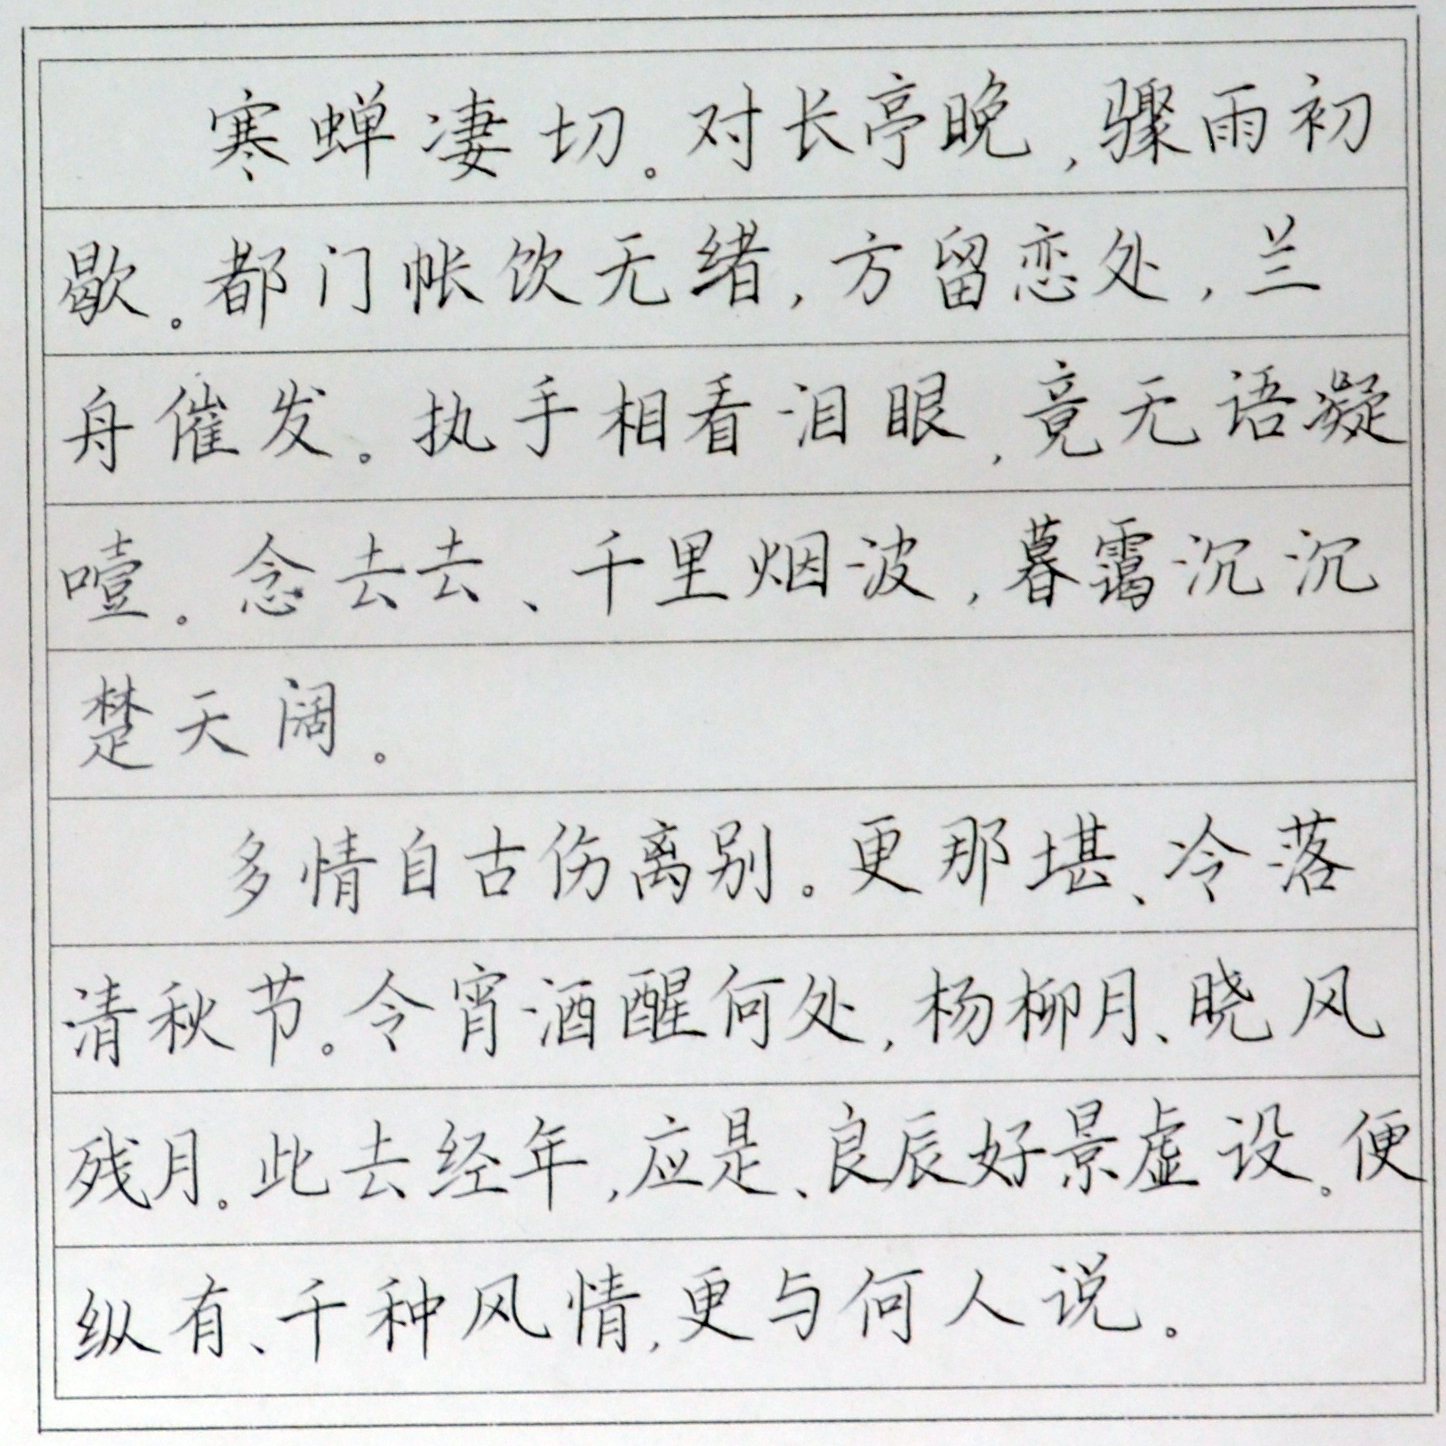 寒蝉凄切。对长亭晚,骤雨初
歇。都门帐饮无绪,方留恋处,兰
舟催发。执手相看泪眼,竟无语凝
噎。念去去、千里烟波,暮霭沉沉
楚天阔。
多情自古伤离别。更那堪、冷落
清秋节。令宵酒醒何处,杨柳月、晓风
残月。此去经年,应是、良辰好景虚设。便
纵有、千种风情,更与何人说。